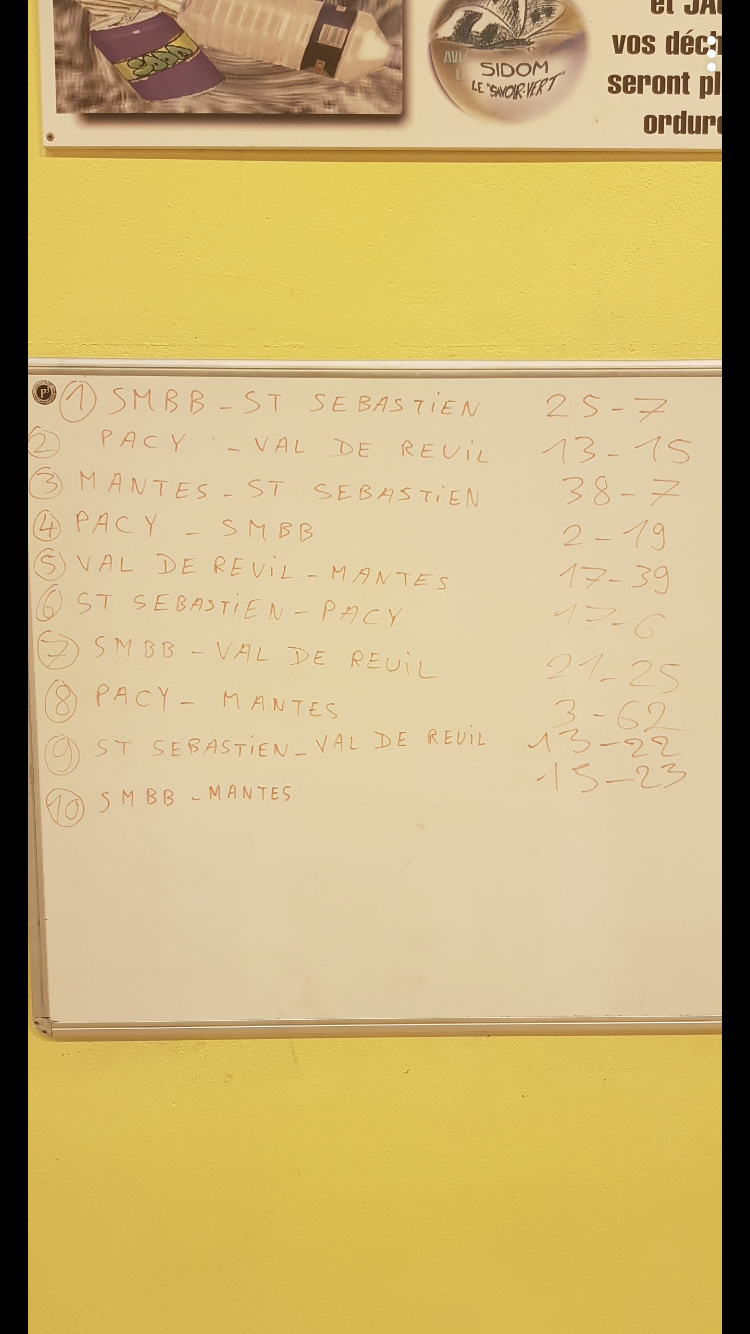 et JA
vos déch
seront pl
ordure
SIDOM
LE "SAVOIR-VERT"
① SMBB - ST SEBASTIEN 25-7
② PACY - VAL DE REUIL 13-15
③ MANTES - ST SEBASTIEN 38-7
④ PACY - SMBB 2-19
⑤ VAL DE REUIL - MANTES 17-39
⑥ ST SEBASTIEN - PACY 17-6
⑦ SMBB - VAL DE REUIL 21-25
⑧ PACY - MANTES 3-62
⑨ ST SEBASTIEN - VAL DE REUIL 13-22
⑩ SMBB - MANTES 15-23